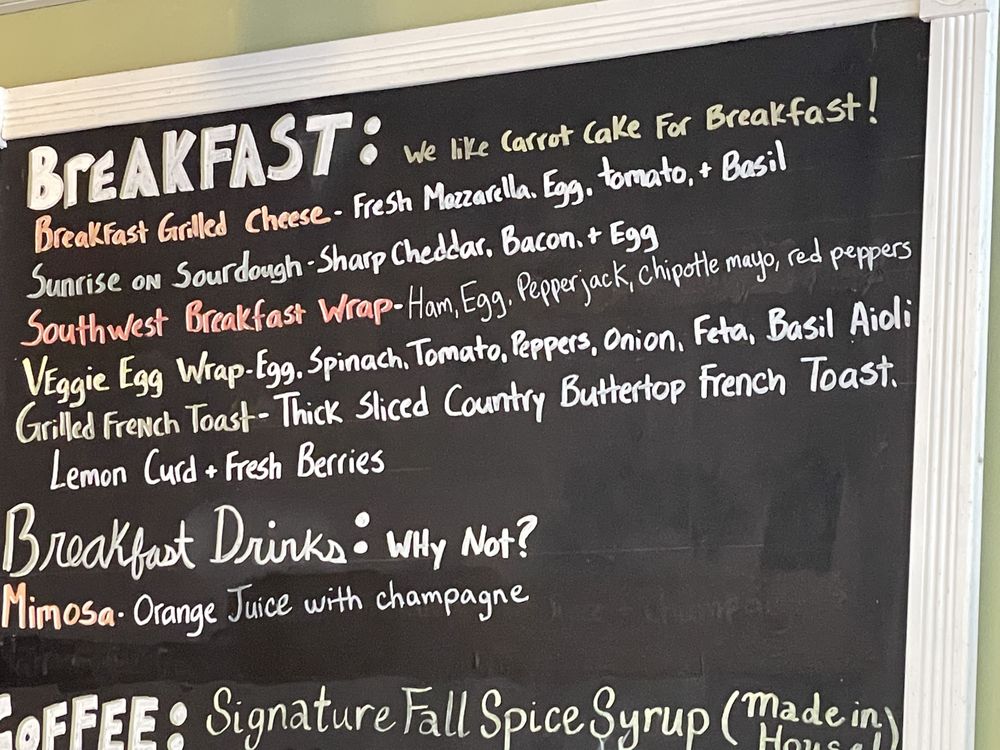 BREAKFAST: We like Carrot Cake For Breakfast!
Breakfast Grilled Cheese - Fresh Mozzarella, Egg, tomato, + Basil
Sunrise on Sourdough - Sharp Cheddar, Bacon, + Egg
Southwest Breakfast Wrap - Ham, Egg, Pepperjack, Chipotle mayo, red peppers
Veggie Egg Wrap - Egg, Spinach, Tomato, Peppers, Onion, Feta, Basil Aioli
Grilled French Toast - Thick Sliced Country Buttertop French Toast.
Lemon Curd + Fresh Berries
Breakfast Drinks: Why Not?
Mimosa - Orange Juice with champagne
COFFEE: Signature Fall Spice Syrup (Made in
House!)